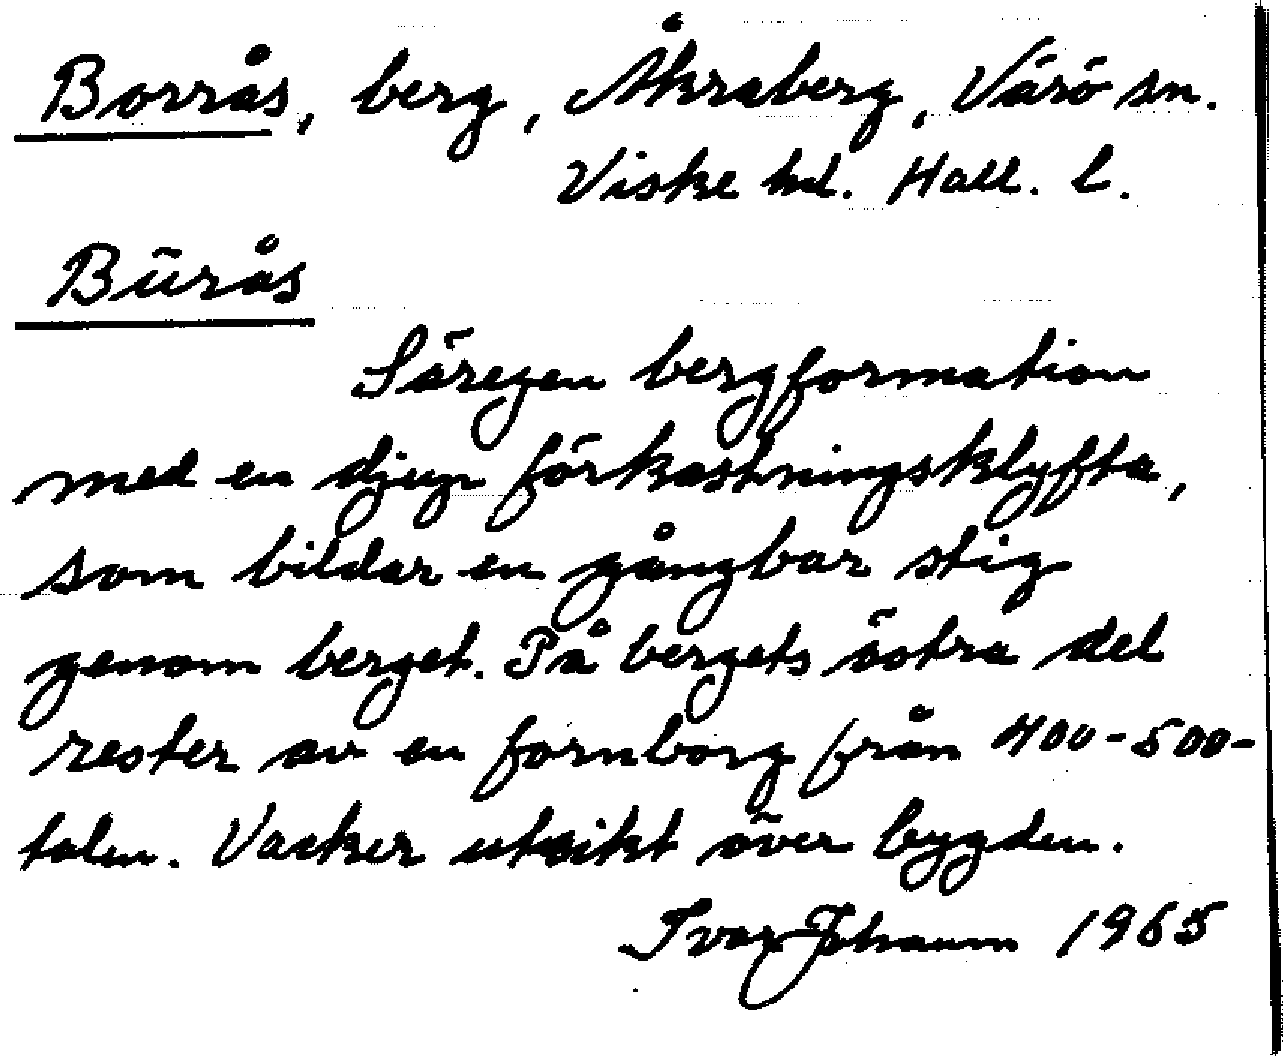 Borrås, berg, Åkraberg, Värö sn.
Viske hd. Hall. l.
Būrås
Säregen bergformation
med en djup förkastningsklyfta,
som bildar en gångbar stig
genom berget. På bergets östra del
rester av en fornborg från 400-500-
talen. Vacker utsikt över bygden.
Ivar Johansson 1965